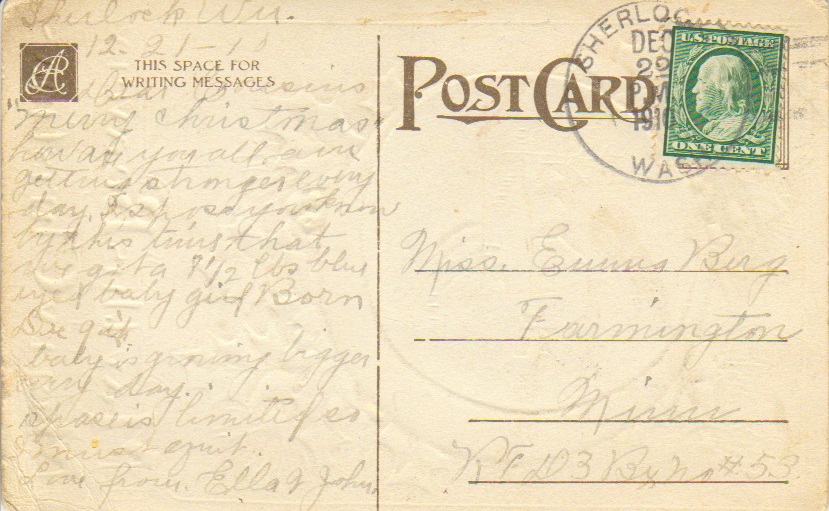 Sherlock Wn.
12-21-10
THIS SPACE FOR
WRITING MESSAGES
POST CARD
SHERLOC
DEC
22
WASH
U.S. POSTAGE
ONE CENT
Dear Cousins
"Merry Christmas"
how are you all. am
getting stronger every
day. I suppose you know
by this time that
we got a 7 1/2 lbs blue
eyed baby girl Born
Dec
baby is growing bigger
every day.
space is limited so
I must quit.
Love from. Ella & John.
Miss. Emma Berg
Farmington
Minn
RFD 3 Bx no #53